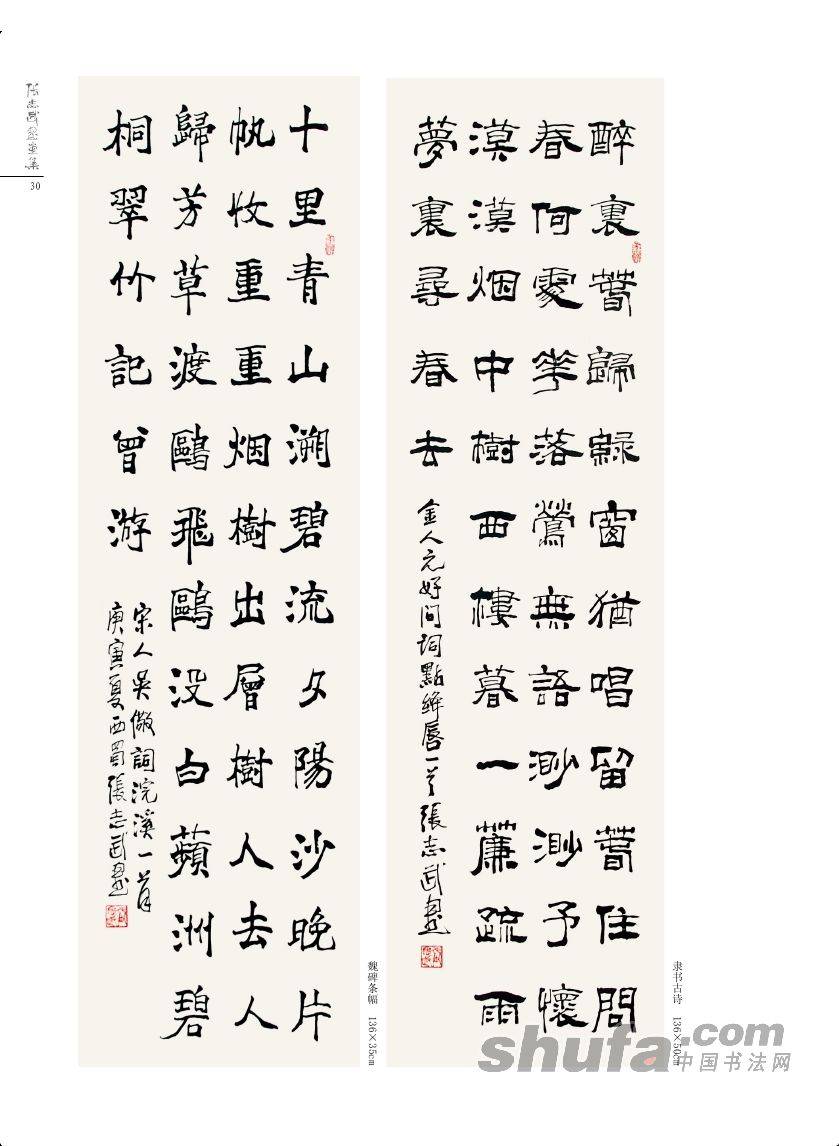 張志武書畫集
30
醉裏春歸綠窗猶唱留春住問
春何處花落鶯無語渺渺予懷
漠漠烟中樹西樓暮一簾疏雨
夢裏尋春去
金人元好問詞點絳唇一首張志武書
隶书古诗 136×50cm
十里青山溯碧流夕陽沙晚片
帆收重重烟樹出層樹人去人
歸芳草渡鷗飛鷗没白蘋洲碧
桐翠竹記曾游
宋人吳儆詞浣溪一首
庚寅夏西蜀張志武書
魏碑条幅 136×35cm
shufa.com
中国书法网